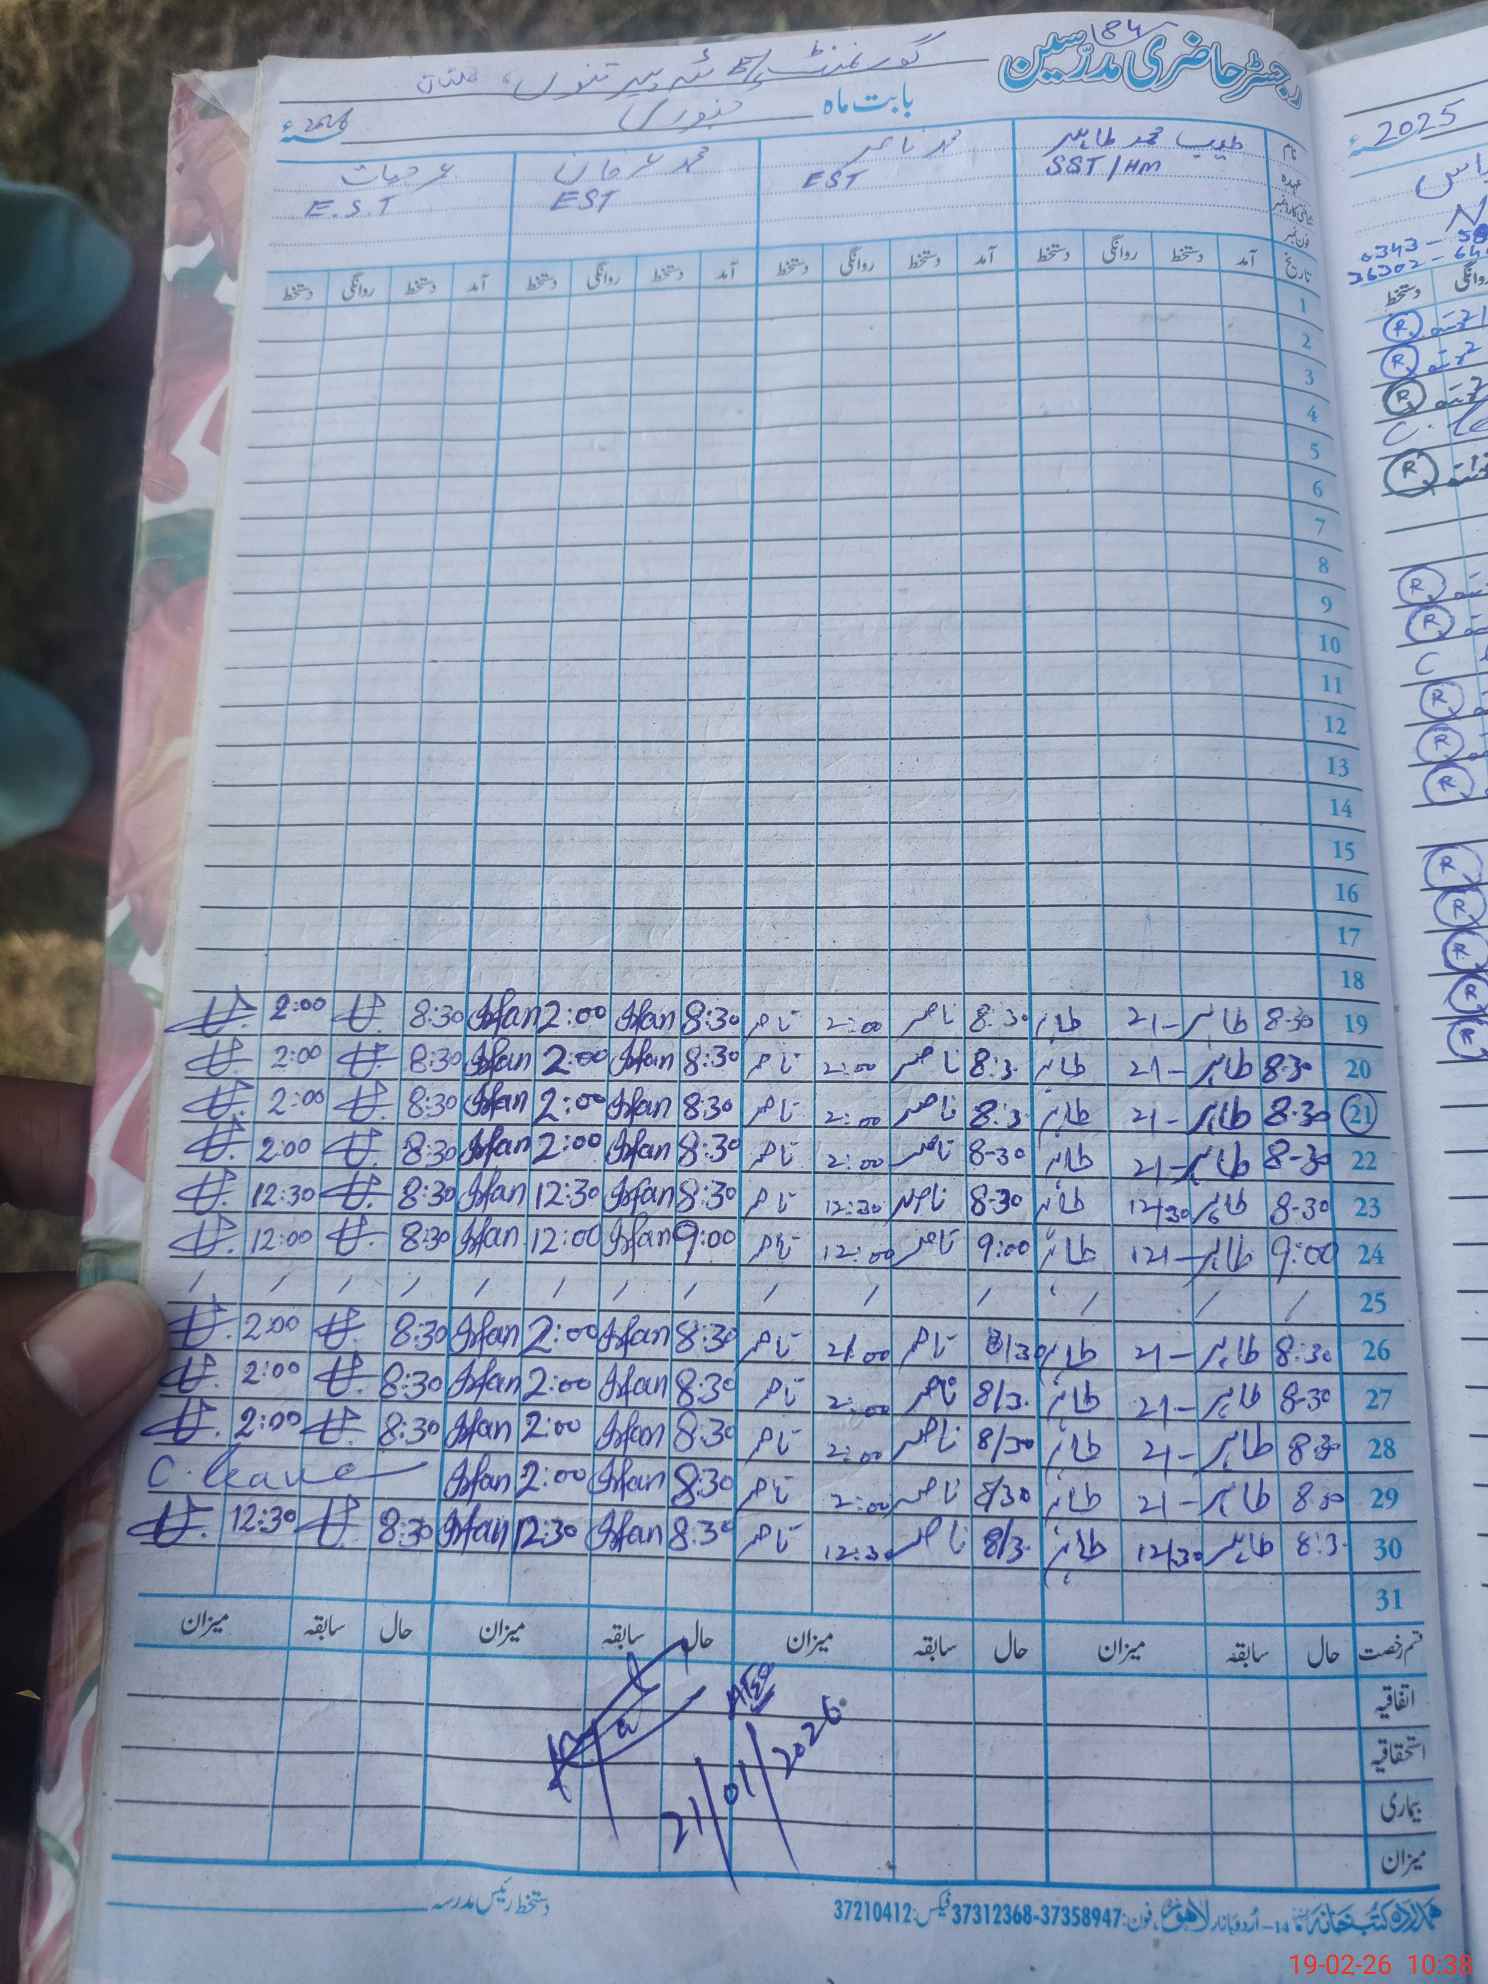 184
رجسٹر حاضری مدرسین
گورنمنٹ ملتان
بابت ماہ جنوری 2026ء
نام طیب محمد طاہر محمد ناصر محمد عرفان عمر حیات
عہدہ SST/HM EST EST E.S.T
شناختی کارڈ نمبر
فون نمبر
تاریخ آمد دستخط روانگی دستخط آمد دستخط روانگی دستخط آمد دستخط روانگی دستخط آمد دستخط روانگی دستخط
1
2
3
4
5
6
7
8
9
10
11
12
13
14
15
16
17
18
19 8-30 طاہر 21- طاہر 8:30 ناصر 2:00 ناصر 8:30 Irfan 2:00 Irfan 8:30 2:00
20 8-30 طاہر 21- طاہر 8:3. ناصر 2:00 ناصر 8:30 Irfan 2:00 Irfan 8:30 2:00
21 8-30 طاہر 21- طاہر 8:3. ناصر 2:00 ناصر 8:30 Irfan 2:00 Irfan 8:30 2:00
22 8-30 طاہر 21- طاہر 8-30 ناصر 2:00 ناصر 8:30 Irfan 2:00 Irfan 8:30 2:00
23 8-30 طاہر 12/30 طاہر 8-30 ناصر 12:30 ناصر 8:30 Irfan 12:30 Irfan 8:30 12:30
24 9:00 طاہر 121- طاہر 9:00 ناصر 12:00 ناصر 9:00 Irfan 12:00 Irfan 8:30 12:00
25 / / / / / / / / / / / / / / / /
26 8:30 طاہر 21- طاہر 8/30 ناصر 2/.00 ناصر 8:30 Irfan 2:00 Irfan 8:30 2:00
27 8-30 طاہر 21- طاہر 8/3. ناصر 2:00 ناصر 8:30 Irfan 2:00 Irfan 8:30 2:00
28 8:30 طاہر 21- طاہر 8/30 ناصر 2:00 ناصر 8:30 Irfan 2:00 Irfan 8:30 2:00
29 8:30 طاہر 21- طاہر 8/30 ناصر 2:00 ناصر 8:30 Irfan 2:00 Irfan C. leave
30 8:3. طاہر 12/30 طاہر 8/3. ناصر 12:30 ناصر 8:30 Irfan 12:30 Irfan 8:30 12:30
31
قسم رخصت حال سابقہ میزان حال سابقہ میزان حال سابقہ میزان حال سابقہ میزان
اتفاقیہ
استحقاقیہ
بیماری
میزان
AEO
21/01/2026
ہمدرد کتب خانہ 14-اردو بازار لاہور، فون: 37358947-37312368 فیکس: 37210412
دستخط رئیس مدرسہ
2025ء
0343-
36302-
روانگی دستخط
R
R
R
R
R
R
C
R
R
R
R
R
R
R
R
19-02-26 10:38